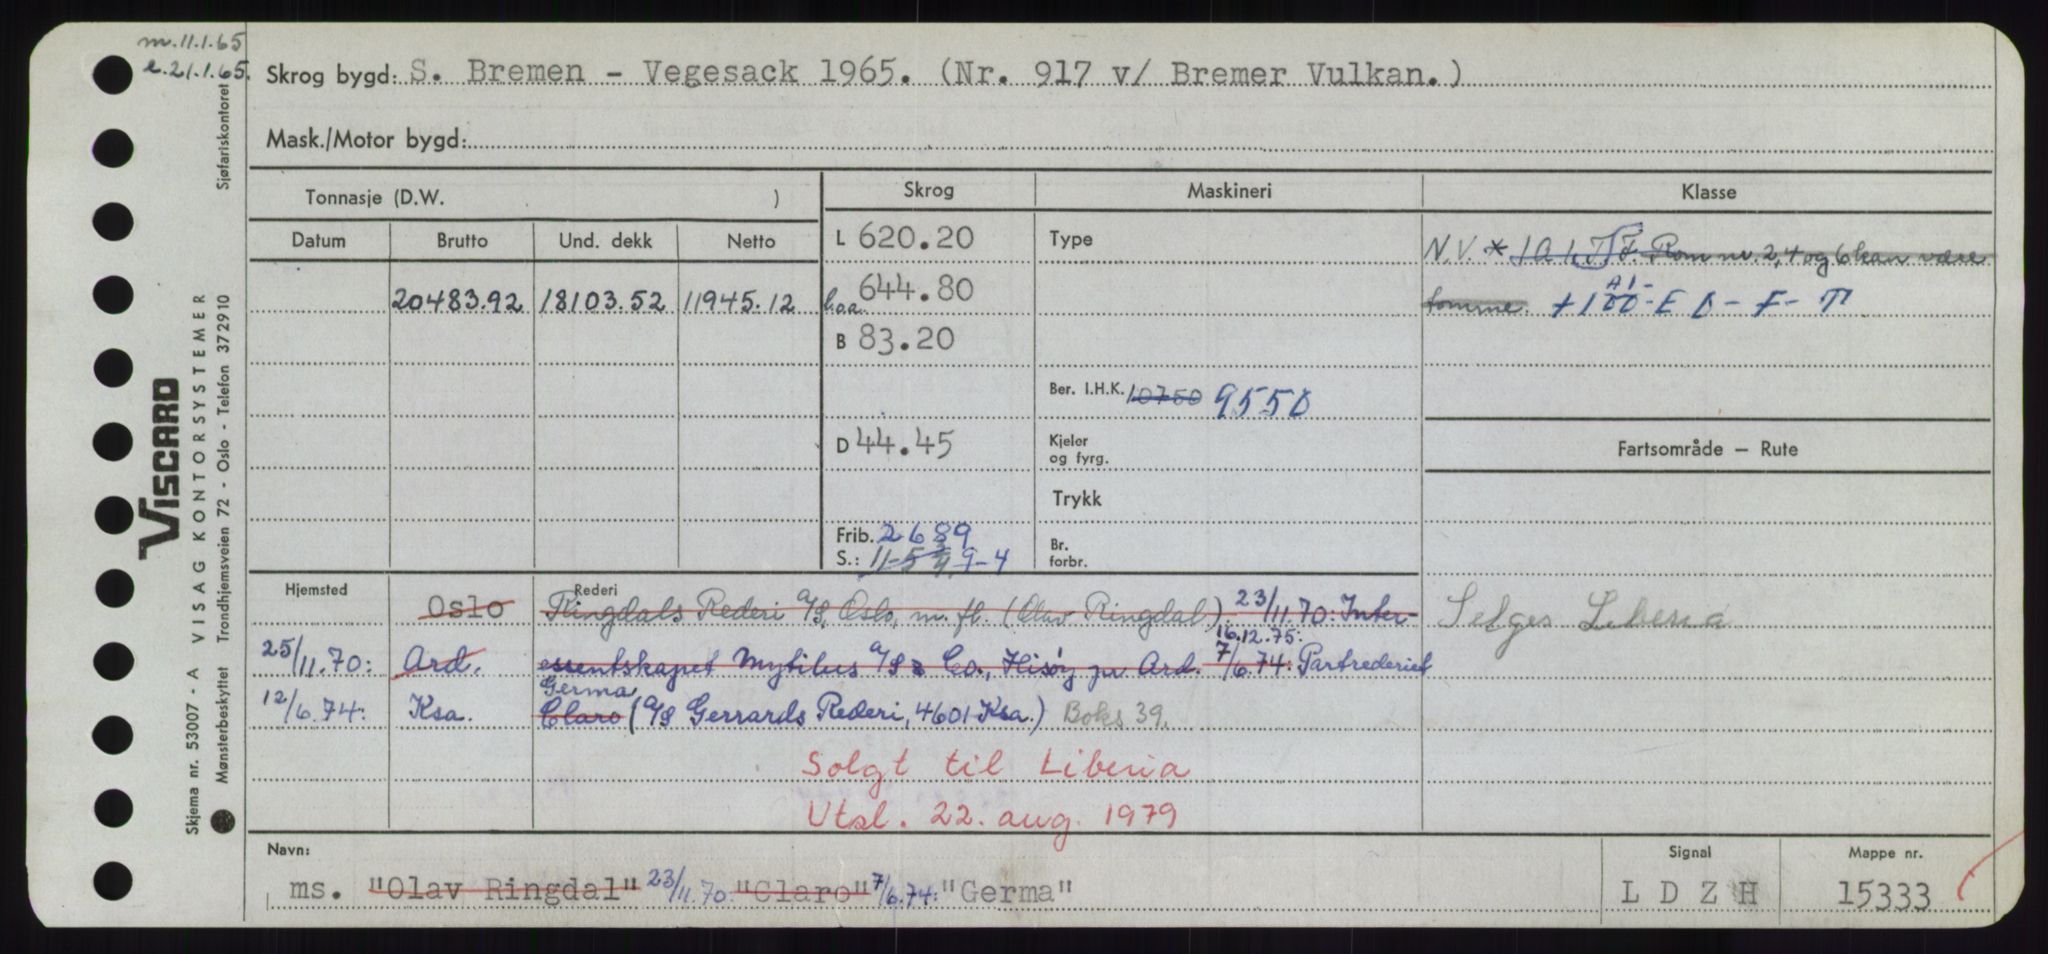 m. 11.1.65
e. 21.1.65.
Skrog bygd: S. Bremen - Vegesack 1965. (Nr. 917 v/ Bremer Vulkan.)
Mask./Motor bygd:
Tonnasje (D.W. )
Skrog
Maskineri
Klasse
Datum Brutto Und. dekk Netto
L 620.20
Type
N.V. * 1A1. T F. Rom nr. 2, 4 og 6 kan være
20483.92 18103.52 11945.12
l.o.a. 644.80
tomme. +100 A1 - E 0 - F - T
B 83.20
Ber. I.H.K. 10750 9550
D 44.45
Kjeler og fyrg.
Fartsområde — Rute
Trykk
Frib. 2689
S.: 11-5 9-4
Br. forbr.
Hjemsted
Rederi
Oslo Ringdals Rederi A/S, Oslo, m. fl. (Olav Ringdal) 23/11.70: Inter-
Selges Liberia
16.12.75:
25/11.70: Ard. essentskapet Mytilus A/S & Co., Hisøy pr Ard. 7/6.74: Partrederiet
Germa
12/6.74: Ksa. Claro (A/S Gerrards Rederi, 4601 Ksa.) Boks 39.
Solgt til Liberia
Utsl. 22. aug. 1979
Navn:
Signal
Mappe nr.
ms. "Olav Ringdal" 23/11.70: "Claro" 7/6.74: "Germa"
L D Z H
15333
VISCARD
Skjema nr. 53007 - A VISAG KONTORSYSTEMER
Mønsterbeskyttet Trondhjemsveien 72 - Oslo - Telefon 372910
Sjøfartskontoret